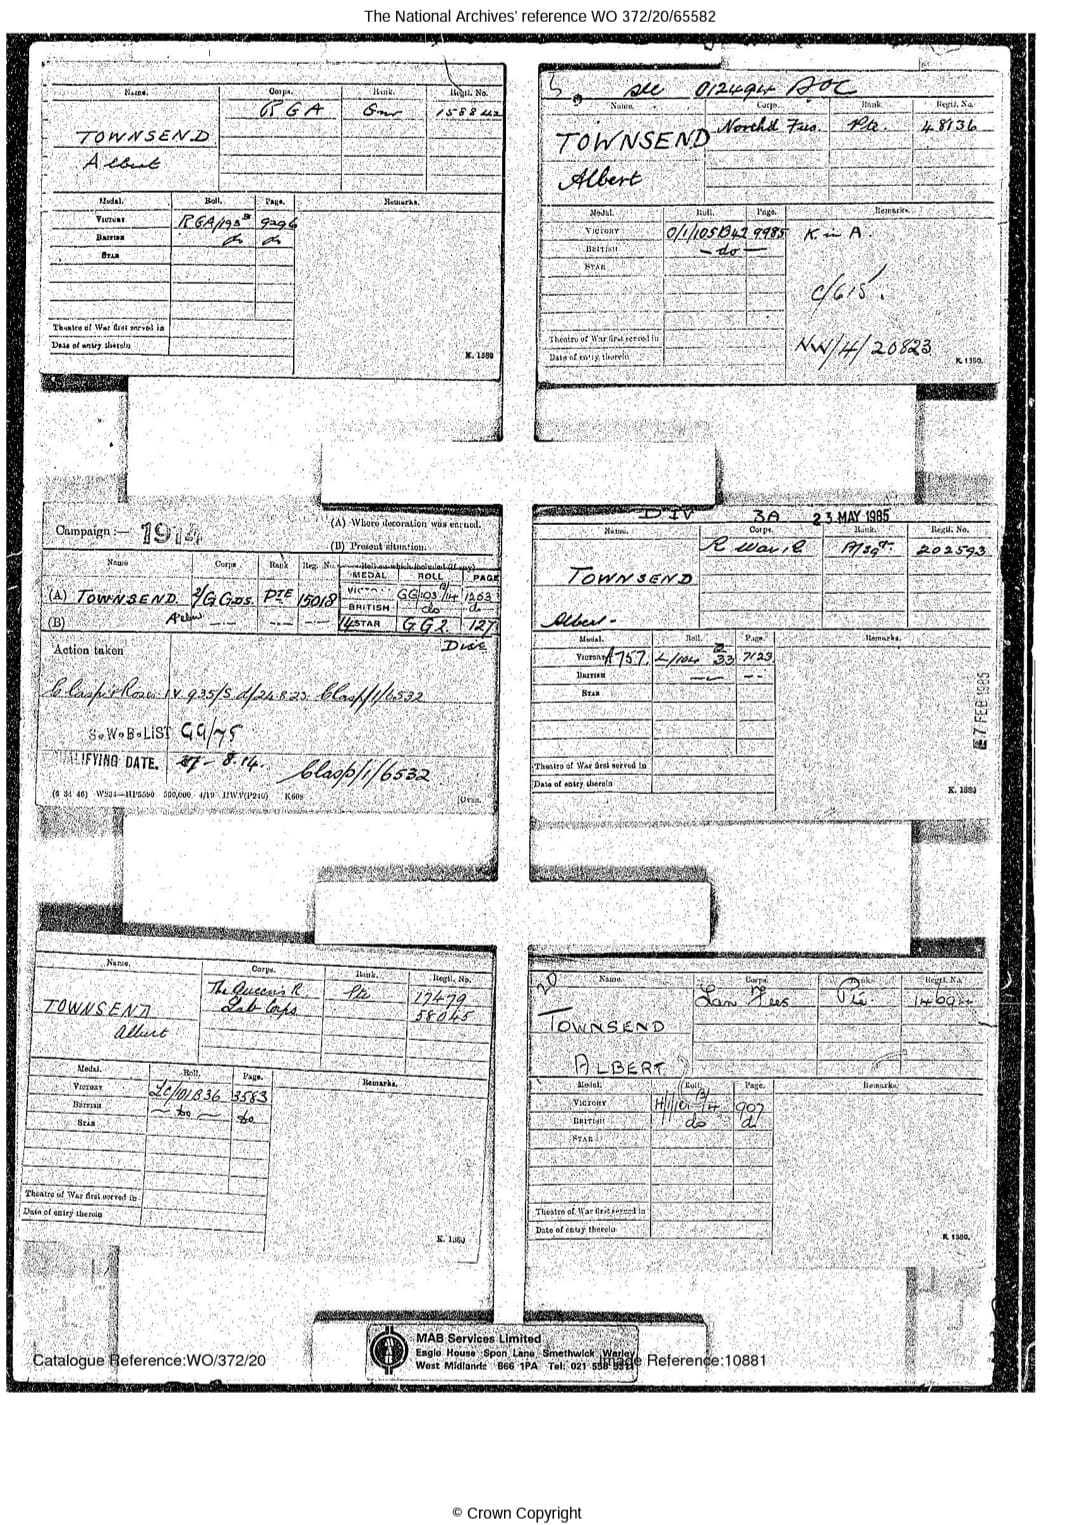 The National Archives' reference WO 372/20/65582
Name. Corps. Rank. Regtl. No.
RGA Gnr 158842
TOWNSEND
Albert
Medal. Roll. Page. Remarks.
VICTORY RGA/195B 9296
BRITISH do do
STAR
Theatre of War first served in
Date of entry therein
K. 1380
5 see 012494 AOC
Name. Corps. Rank. Regtl. No.
TOWNSEND North'd Fus. Pte. 48136
Albert
Medal. Roll. Page. Remarks.
VICTORY 0/1/105B42 9985 K in A.
BRITISH —do—
STAR
C/615.
Theatre of War first served in
NW/4/20823
Date of entry therein
K. 1380.
Campaign :— 1914
(A) Where decoration was earned.
(B) Present situation.
Name Corps Rank Reg. No. Roll on which included (if any)
MEDAL ROLL PAGE
(A) TOWNSEND. 2/G Gds. PTE 15018 VICTORY GG/103 B/14 1263
BRITISH do do
(B) Albert — — — 14 STAR GG2 127
Action taken Disc
Clasp & Roses IV 935/S d/24.8.23. Clasp/1/6532
S.W.B. LIST GG/75
QUALIFYING DATE. 8.14. Clasp/1/6532
K608
DIV 3A 23 MAY 1985
Name. Corps. Rank. Regtl. No.
R War. R. A/Sgt. 202593
TOWNSEND
Albert
Medal. Roll. Page. Remarks.
VICTORY A757. L/104 B 33 7129
BRITISH
STAR
7 FEB 1985
Theatre of War first served in
Date of entry therein
K. 1380
Name. Corps. Rank. Regtl. No.
The Queen's R. Pte 17479
TOWNSEND Lab Corps 58045
Albert
Medal. Roll. Page. Remarks.
VICTORY LC/101B36 3583
BRITISH — do — do
STAR
Theatre of War first served in
Date of entry therein
K. 1380
20 Name. Corps. Rank. Regtl. No.
Lan Fus Pte.
TOWNSEND
ALBERT
Medal. Roll. Page. Remarks.
VICTORY 907
BRITISH do d
STAR
Theatre of War first served in
Date of entry therein
K. 1380.
MAB Services Limited
Eagle House Spon Lane, Smethwick, Warley
West Midlands B66 1PA Tel: 021
Catalogue Reference:WO/372/20
Image Reference:10881
© Crown Copyright